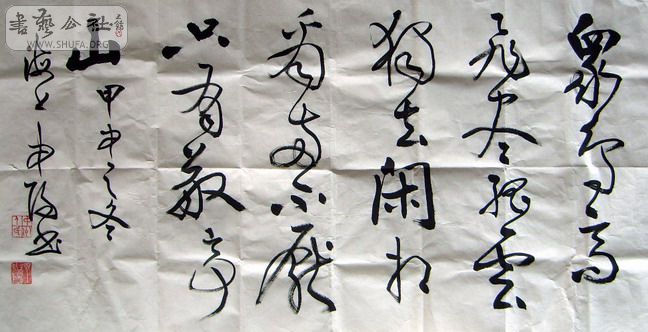 衆鳥高
飛尽孤雲
獨去閑相
看两不厭
只有敬亭
山 甲申之冬
海上申书
書藝公社
WWW.SHUFA.ORG